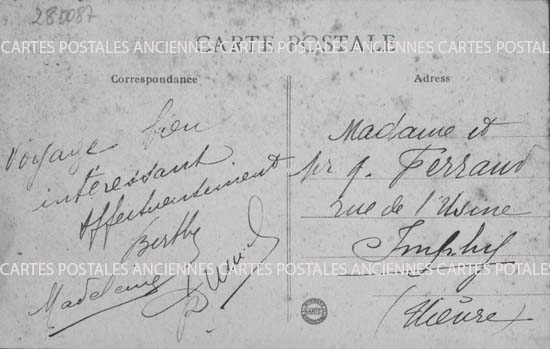 280087
CARTES POSTALES ANCIENNES CARTES POSTALES ANCIENNES CARTES POSTALES ANCIENNES
CARTE POSTALE
Correspondance
Voyage bien
intéressant
Affectueusement
Berthe
Madeleine
Adresse
Madame et
Mr J. Ferrand
rue de l'Usine
Imphy
(Nièvre)
CARTES POSTALES ANCIENNES CARTES POSTALES ANCIENNES CARTES POSTALES ANCIENNES